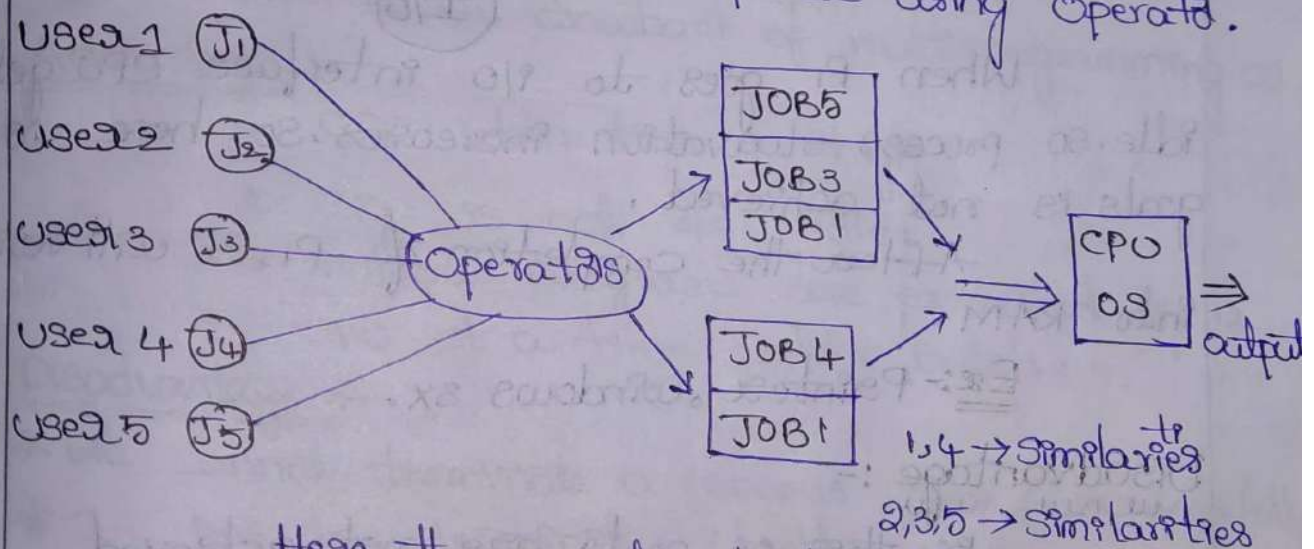 using Operatd.
User1 J1
User2 J2
User3 J3
User 4 J4
User 5 J5
Operators
JOB5
JOB3
JOB1
JOB4
JOB1
CPU
OS
output
1,4 → Similarities
2,3,5 → Similarities